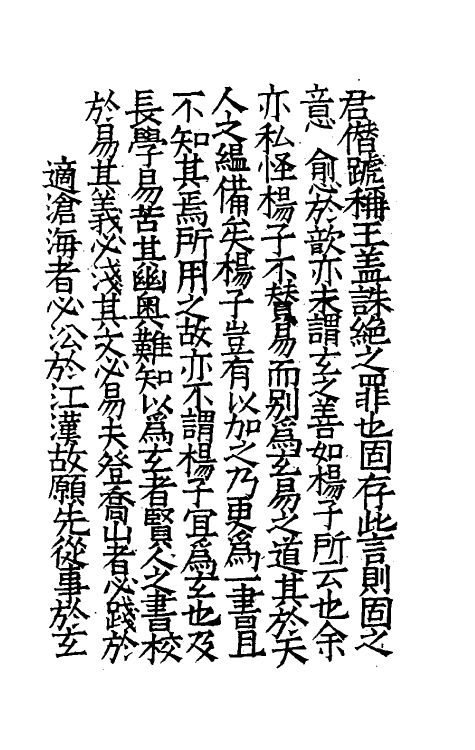 君僭號稱王盖誅絶之罪也固存此言則固之
意愈於歆亦未謂玄之善如楊子所云也余
亦私怪楊子不賛易而别爲玄易之道其於天
人之緼備矣楊子豈有以加之乃更爲一書且
不知其焉所用之故亦不謂楊子宜爲玄也及
長學易苦其幽奥難知以爲玄者賢人之書校
於易其義必淺其文必易夫登喬山者必踐於
適滄海者必沿於江漢故願先從事於玄